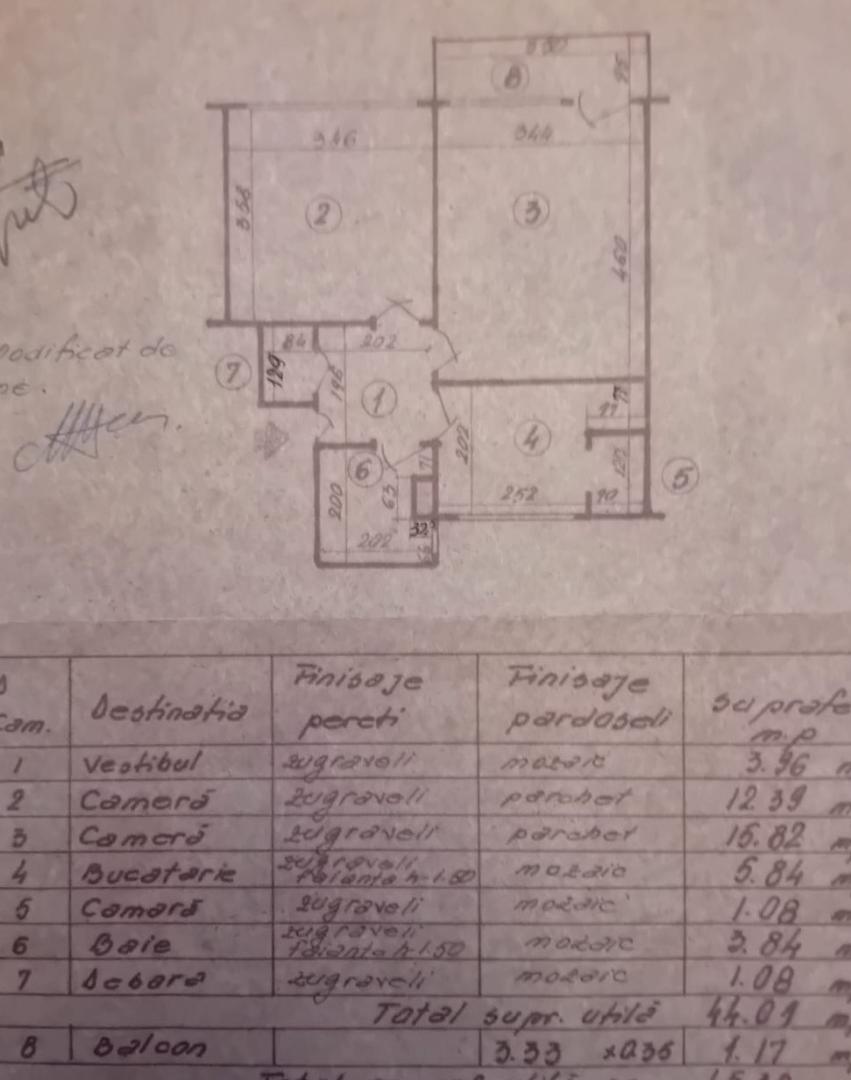 95
8
346
344
358
2
3
460
odificat de
7
84
202
129
196
1
4
202
77
77
6
71
120
5
200
63
252
90
32
202
Cam.
Destinatia
Finisaje pereti
Finisaje pardoseli
suprafe m.p
1 Vestibul zugraveli mozaic 3.96 m
2 Camera zugraveli parchet 12.39 m
3 Camera zugraveli parchet 15.82 m
4 Bucatarie zugraveli faianta h-1.50 mozaic 5.84 m
5 Camară zugraveli mozaic 1.08 m
6 Baie zugraveli faianta h 1.50 mozaic 3.84 m
7 Debara zugraveli mozaic 1.08 m
Total supr. utilă 44.01 m
8 Balcon 3.33 x0.35 1.17 m